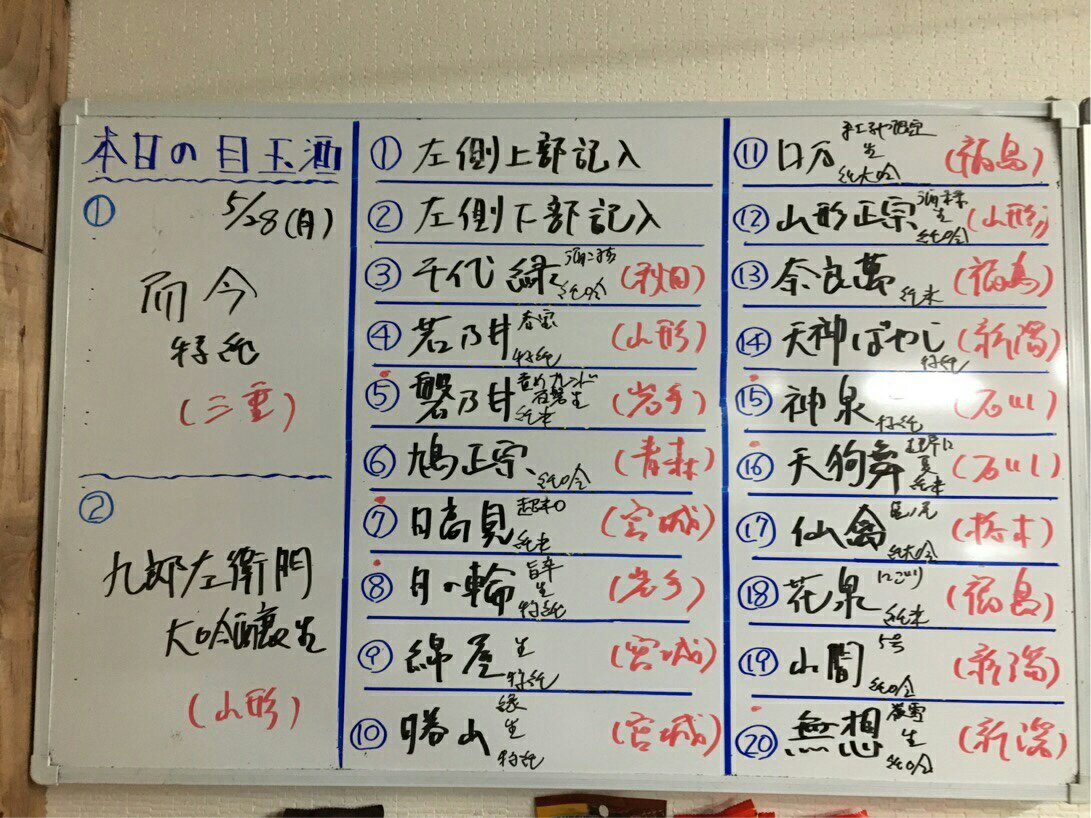 本日の目玉酒
① 5/28(月)
而今
特純
(三重)
②
九郎左衛門
大吟醸生
(山形)
① 左側上部記入
② 左側下部記入
③ 千代緑 純吟 (秋田)
④ 若乃井 特純 (山形)
⑤ 磐乃井 生 純米 (岩手)
⑥ 鳩正宗 純吟 (青森)
⑦ 日高見 超辛口 純米 (宮城)
⑧ 月の輪 旨辛 生 特純 (岩手)
⑨ 綿屋 生 特純 (宮城)
⑩ 勝山 縁 生 特純 (宮城)
⑪ 口万 生 純大吟 (福島)
⑫ 山形正宗 生 純吟 (山形)
⑬ 奈良萬 純米 (福島)
⑭ 天神ばやし 特純 (新潟)
⑮ 神泉 特純 (石川)
⑯ 天狗舞 超辛口 夏 純米 (石川)
⑰ 仙禽 亀ノ尾 純大吟 (栃木)
⑱ 花泉 にごり 純米 (福島)
⑲ 山間 5号 純吟 (新潟)
⑳ 無想 生 純吟 (新潟)